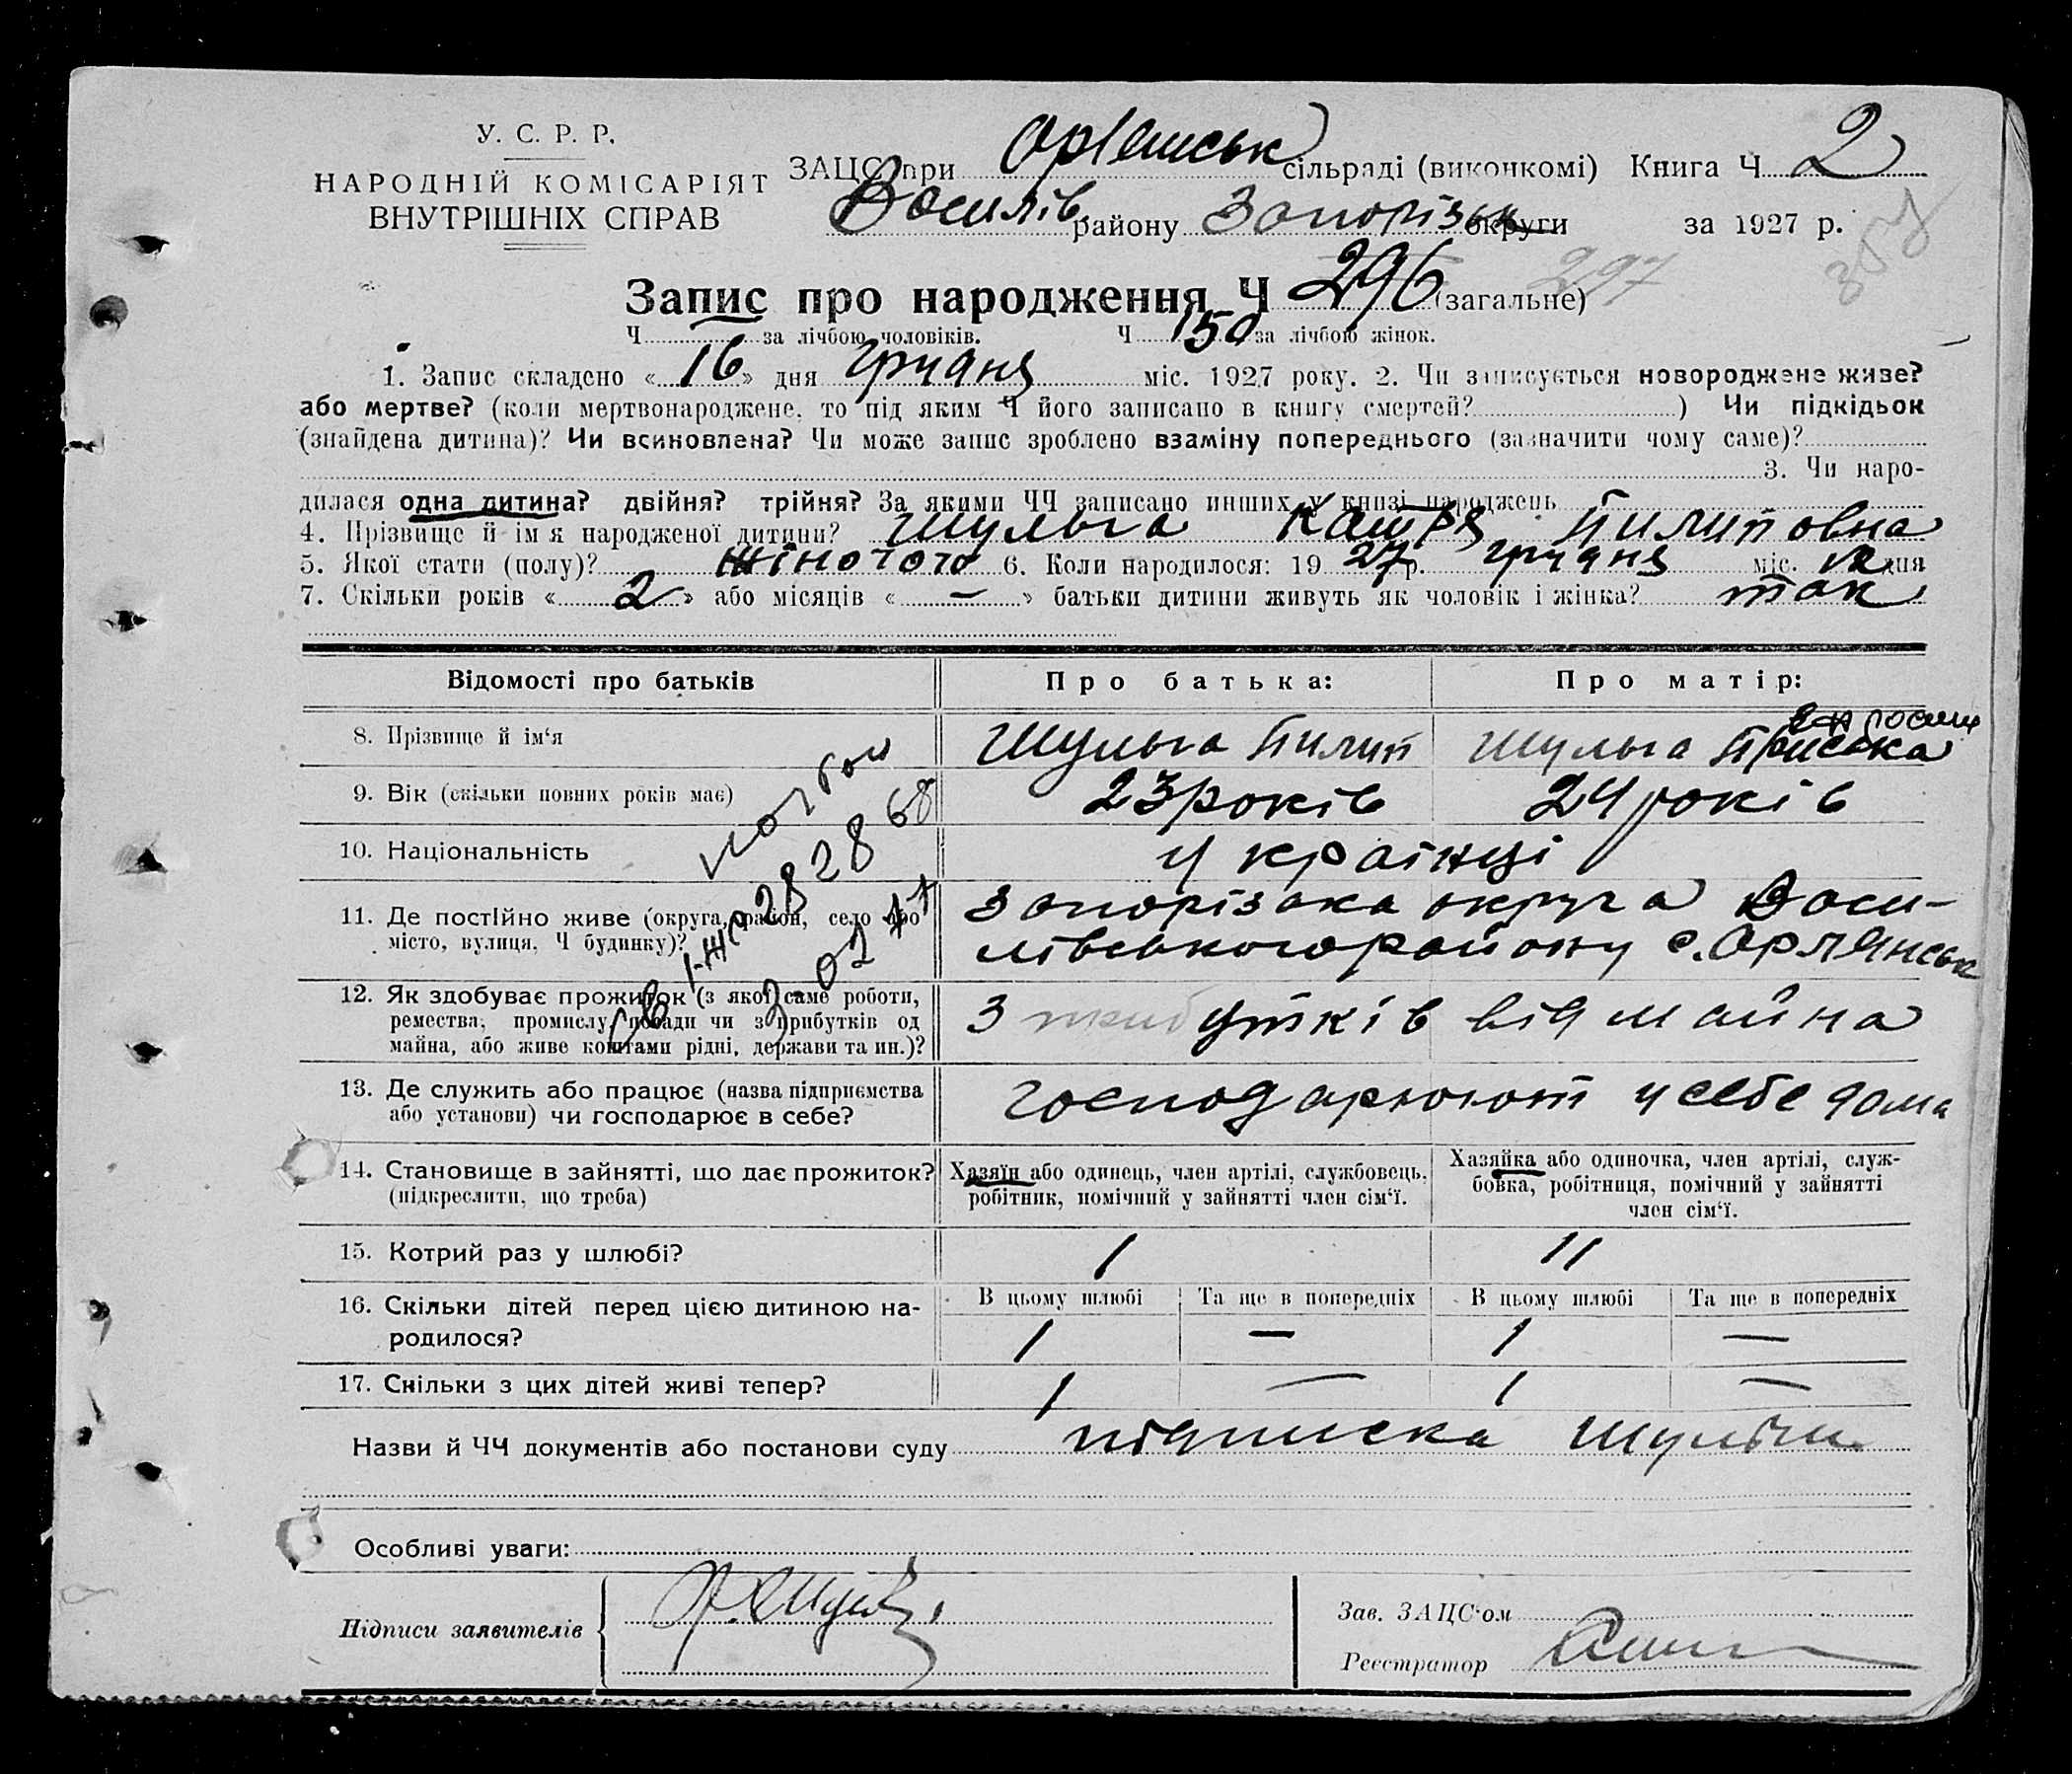 У. С. Р. Р.
НАРОДНІЙ КОМІСАРІЯТ
ВНУТРІШНІХ СПРАВ
ЗАЦС при Орлянськ сільраді (виконкомі) Книга Ч 2
Василів району Запорізьк округи за 1927 р.
Запис про народження Ч 296 (загальне) 297
Ч за лічбою чоловіків. Ч 150 за лічбою жінок.
1. Запис складено « 16 » дня грудня міс. 1927 року. 2. Чи записується новороджене живе?
або мертве? (коли мертвонароджене, то під яким Ч його записано в книгу смертей? ) Чи підкідьок
(знайдена дитина)? Чи всиновлена? Чи може запис зроблено взаміну попереднього (зазначити чому саме)?
3. Чи наро-
дилася одна дитина? двійня? трійня? За якими ЧЧ записано инших у книзі народжень
4. Прізвище й ім'я народженої дитини? Шульга Катря Пилиповна
5. Якої стати (полу)? жіночого 6. Коли народилося: 19 27 р. грудня міс. 12 дня
7. Скільки років « 2 » або місяців « — » батьки дитини живуть як чоловік і жінка? так
Відомості про батьків
Про батька:
Про матір:
8. Прізвище й ім‘я Шульга Пилип Шульга Приська
9. Вік (скільки повних років має) 23 років 24 років
10. Національність українці
11. Де постійно живе (округа, район, село або місто, вулиця, Ч будинку)? Запорізька округа Васи-
лівського району с. Орлянськ
12. Як здобуває прожиток (з якої саме роботи,
ремества, промислу, посади чи з прибутків од
майна, або живе коштами рідні, держави та ин.)? З прибутків від майна
13. Де служить або працює (назва підприємства
або установи) чи господарює в себе? господарюют у себе дома
14. Становище в зайнятті, що дає прожиток?
(підкреслити, що треба)
Хазяїн або одинець, член артілі, службовець,
робітник, помічний у зайнятті член сім‘ї.
Хазяйка або одиночка, член артілі, служ-
бовка, робітниця, помічний у зайнятті
член сім‘ї.
15. Котрий раз у шлюбі? 1 11
16. Скільки дітей перед цією дитиною на-
родилося?
В цьому шлюбі Та ще в попередніх В цьому шлюбі Та ще в попередніх
1 — 1 —
17. Скільки з цих дітей живі тепер? 1 — 1 —
Назви й ЧЧ документів або постанови суду підписка Шульги
Особливі уваги:
Підписи заявителів
Зав. ЗАЦС‘ом
Реєстратор